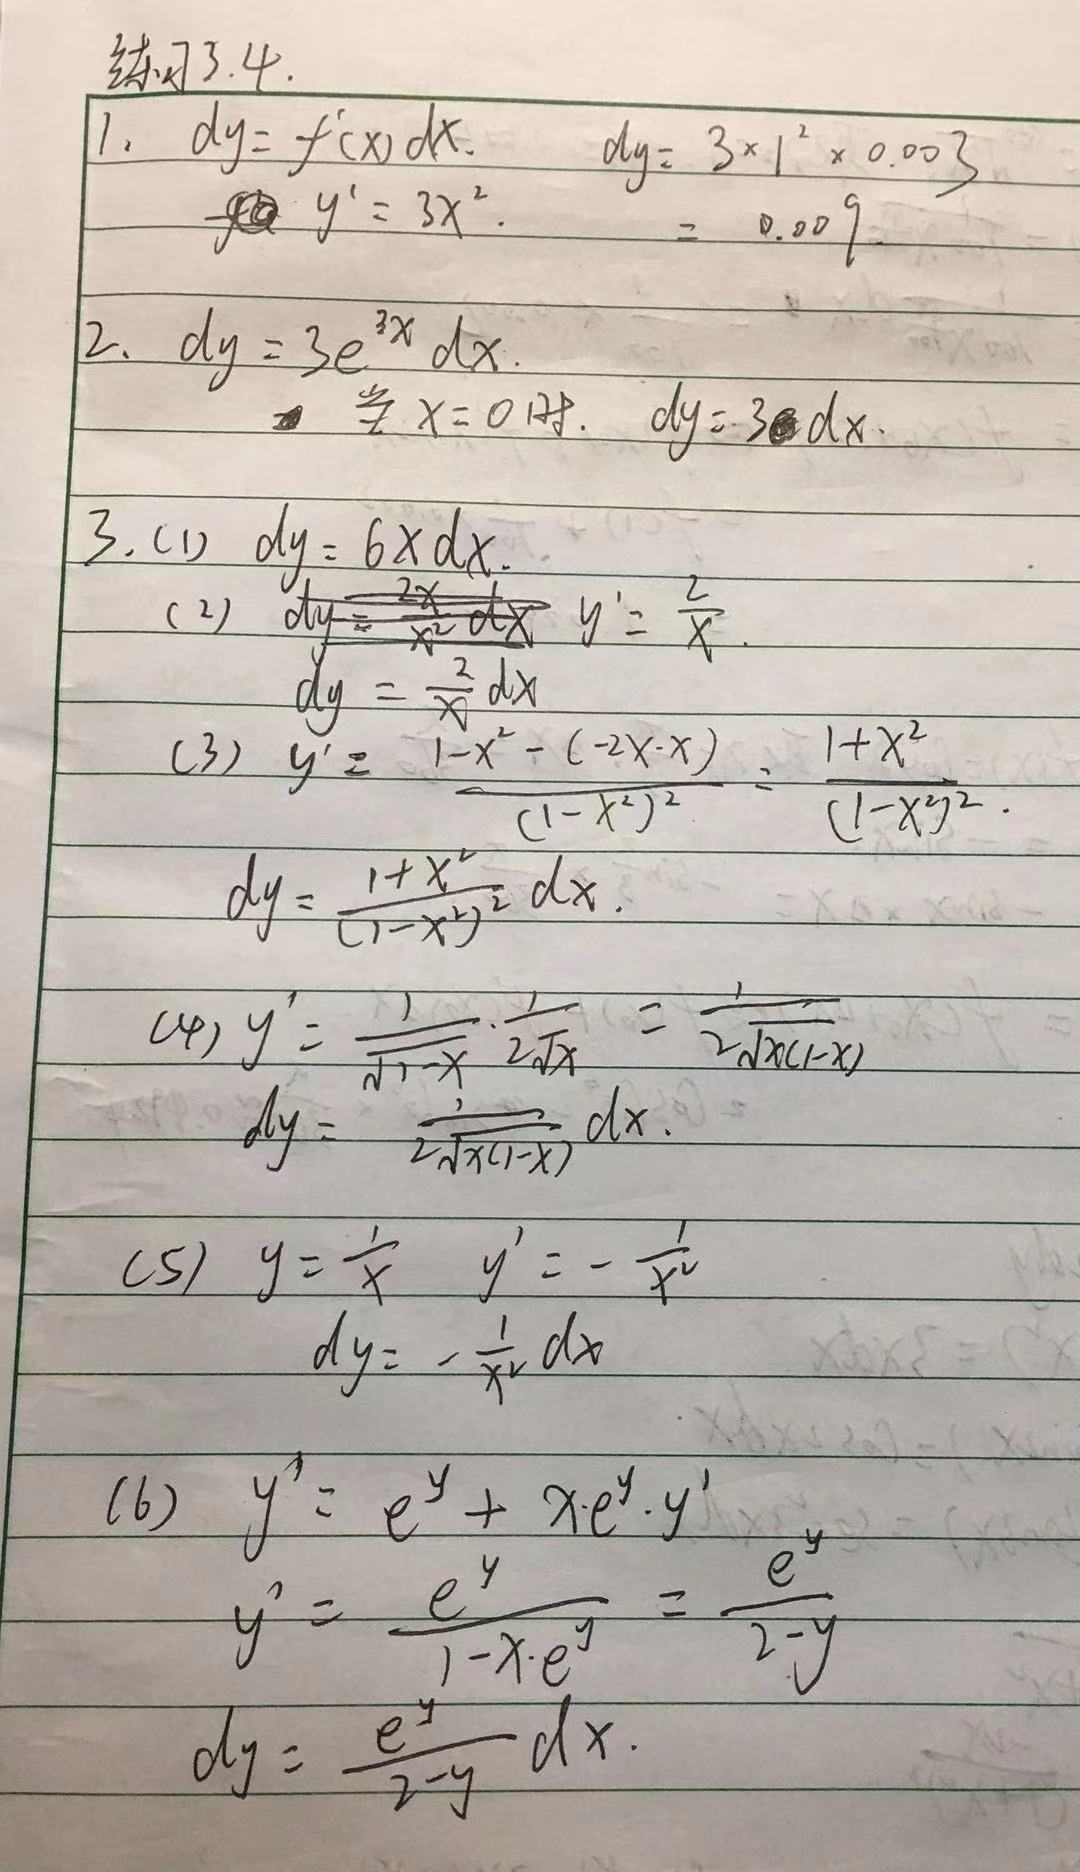 练习3.4.
1. dy = f'(x)dx. dy = 3×1²×0.003
y' = 3x². = 0.009.
2. dy = 3e^{3x} dx.
当 x=0时. dy=3dx.
3.(1) dy = 6xdx.
(2) dy = \frac{2x}{x²} dx y' = \frac{2}{x}.
dy = \frac{2}{x} dx
(3) y' = \frac{1-x²-(-2x·x)}{(1-x²)²} = \frac{1+x²}{(1-x²)²}.
dy = \frac{1+x²}{(1-x²)²} dx.
(4) y' = \frac{1}{\sqrt{1-x}} · \frac{1}{2\sqrt{x}} = \frac{1}{2\sqrt{x(1-x)}}
dy = \frac{1}{2\sqrt{x(1-x)}} dx.
(5) y = \frac{1}{x} y' = -\frac{1}{x²}
dy = -\frac{1}{x²} dx
(6) y' = e^y + x·e^y·y'
y' = \frac{e^y}{1-x·e^y} = \frac{e^y}{2-y}
dy = \frac{e^y}{2-y} dx.